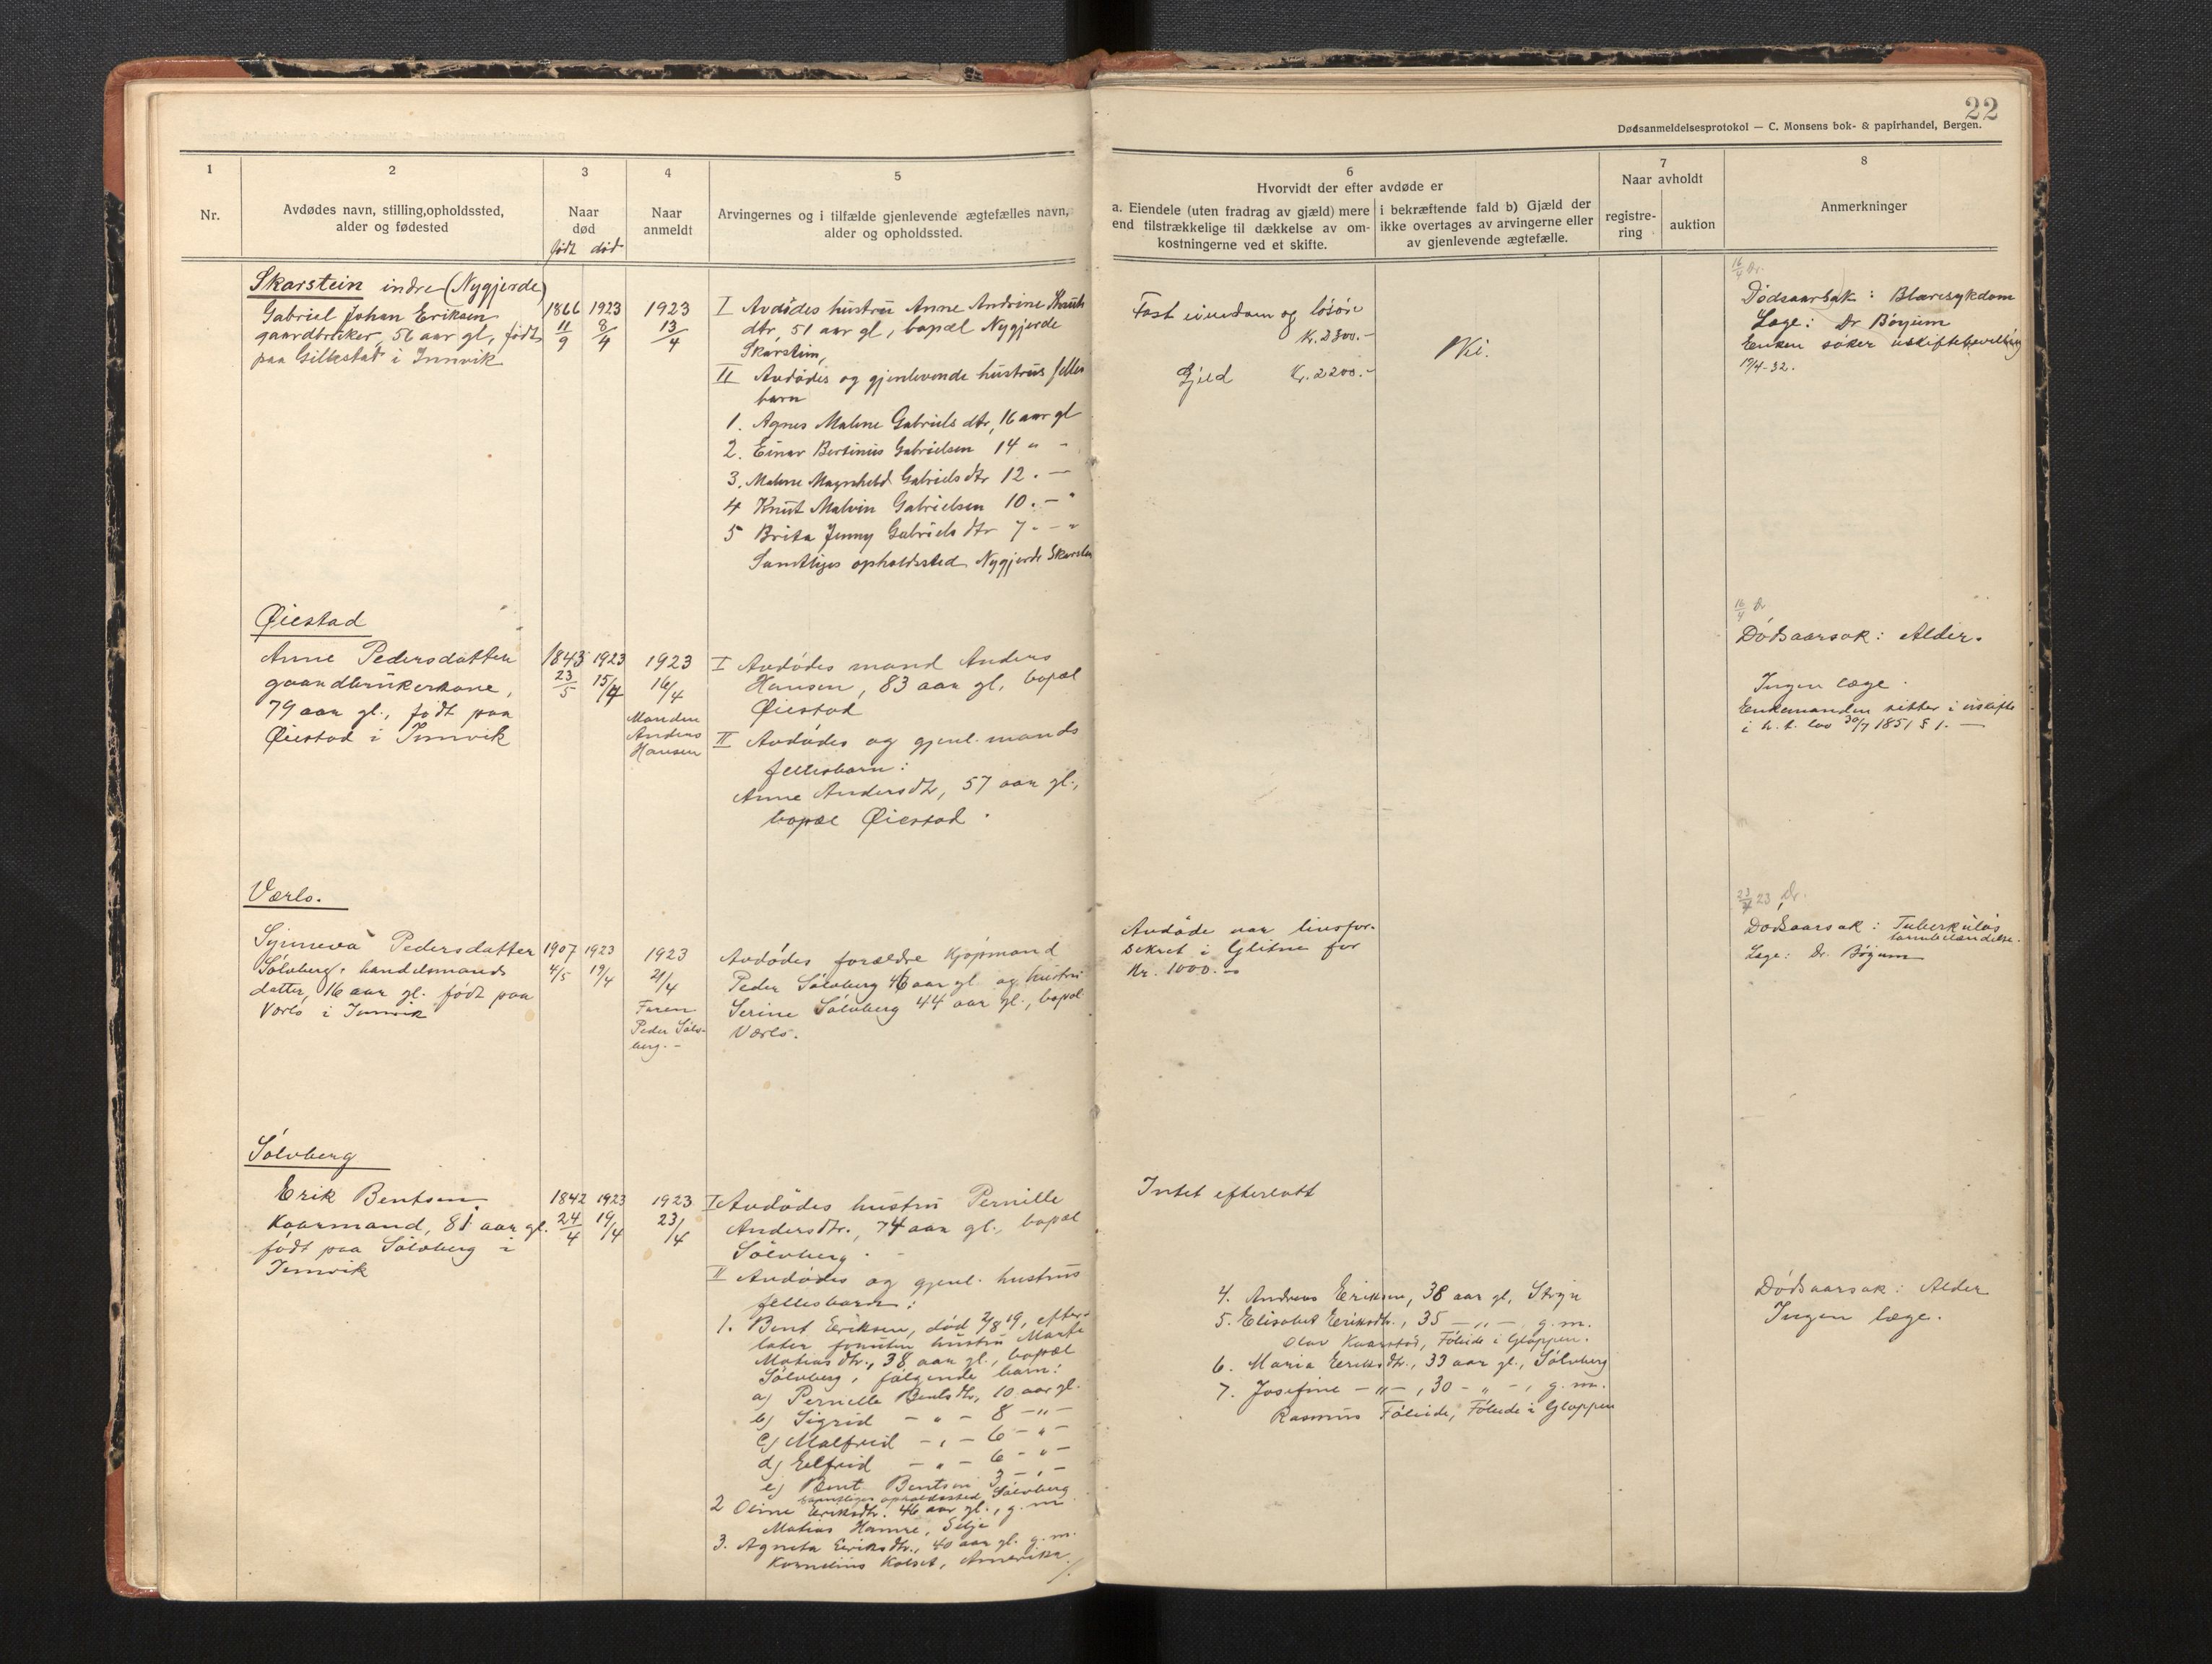 22
Dødsanmeldelsesprotokol — C. Monsens bok- & papirhandel, Bergen.
1
Nr.
2
Avdødes navn, stilling, opholdssted,
alder og fødested
3
Naar
død
født død
4
Naar
anmeldt
5
Arvingernes og i tilfælde gjenlevende ægtefælles navn,
alder og opholdssted.
6
Hvorvidt der efter avdøde er
a. Eiendele (uten fradrag av gjæld) mere
end tilstrækkelige til dækkelse av om-
kostningerne ved et skifte.
i bekræftende fald b) Gjæld der
ikke overtages av arvingerne eller
av gjenlevende ægtefælle.
7
Naar avholdt
registre-
ring
auktion
8
Anmerkninger
Skarstein indre (Nygjerde)
Gabriel Johan Eriksen
gaardbruker, 56 aar gl, født
paa Gilkestad i Innvik
1866 1923
11/9 8/4
1923
13/4
I Avdødes hustru Anne Andrine Knuts
dtr, 51 aar gl, bopæl Nygjerde
Skarstein,
II Avdødes og gjenlevende hustrus felles
barn
1. Agnes Malene Gabriels dtr, 16 aar gl
2. Einar Bertinius Gabrielsen 14 " -
3. Malene Magnhild Gabriels dtr 12 . —
4 Knut Malvin Gabrielsen 10 . - "
5 Brita Jenny Gabriels dtr 7 - - "
Samtliges opholdssted Nygjerde Skarstein
Fast eiendom og løsøre
Kr. 2300.-
Gjeld Kr. 2200.-
Nei.
16/4 Dr.
Dødsaarsak: Blæresykdom
Læge: Dr Böyum
Enken søker uskiftebevilling
17/4-32.
Øiestad
Anne Pedersdatter
gaardbrukerkone,
79 aar gl., født paa
Øiestad i Innvik
1843 1923
23/5 15/4
1923
16/4
Manden
Anders
Hansen
I Avdødes mand Anders
Hansen, 83 aar gl., bopæl
Øiestad
II Avdødes og gjenl. mands
fellesbarn:
Anne Andersdtr, 57 aar gl.,
bopæl Øiestad.
16/4 Dr.
Dødsaarsak: Alder.
Ingen læge.
Enkemanden sitter i uskifte
i h. t. lov 30/7 1851 § 1. —
Værlo.
Synneva Pedersdatter
Sölvberg, handelsmands
datter, 16 aar gl. født paa
Værlo i Innvik
1907 1923
4/5 19/4
1923
21/4
Faren
Peder Sölv-
berg. -
Avdødes forældre Kjöpmand
Peder Sölvberg 46 aar gl. og hustru
Serine Sölvberg 44 aar gl., bopæl
Værlo.
Avdøde var livsfor-
sikret i Glitne for
Kr. 1000.-
23/4 23 Dr.
Dødsaarsak: Tuberkuløs
Læge: Dr. Böyum
Sölvberg
Erik Bentsen
Kaarmand, 81 aar gl.
født paa Sölvberg i
Innvik
1842 1923
24/4 19/4
1923
23/4
I Avdødes hustru Pernille
Andersdtr., 74 aar gl., bopæl
Sölvberg.
II Avdødes og gjenl. hustrus
fellesbarn:
1. Bent Eriksen, död 7/8 19, efter-
later foruten hustru Marte
Matiasdtr., 38 aar gl., bopæl
Sölvberg, følgende barn:
a) Pernille Bentsdtr, 10 aar gl.
b) Sigrid - " - 8 - " -
c) Malfrid - " - 6 - " -
d) Eilfrid - " - 6 - " -
e) Bent Bentsen 3 - " -
samtliges opholdssted Sölvberg
2 Oline Eriksdtr. 46 aar gl., g. m
Matias Hamre, Selje
3. Agneta Eriksdtr., 40 aar gl. g. m.
Kornelius Kolset, Amerika.
Intet efterlatt
4. Andreas Eriksen, 38 aar gl, Stryn
5. Elisabet Eriksdtr., 35 - " -, g. m.
Olav Kvarstad, Föleide i Gloppen.
6. Maria Eriksdtr., 33 aar gl., Sölvberg
7. Josefine - " -, 30 - " -, g. m.
Rasmus Föleide, Föleide i Gloppen
Dødsaarsak: Alder
Ingen læge.